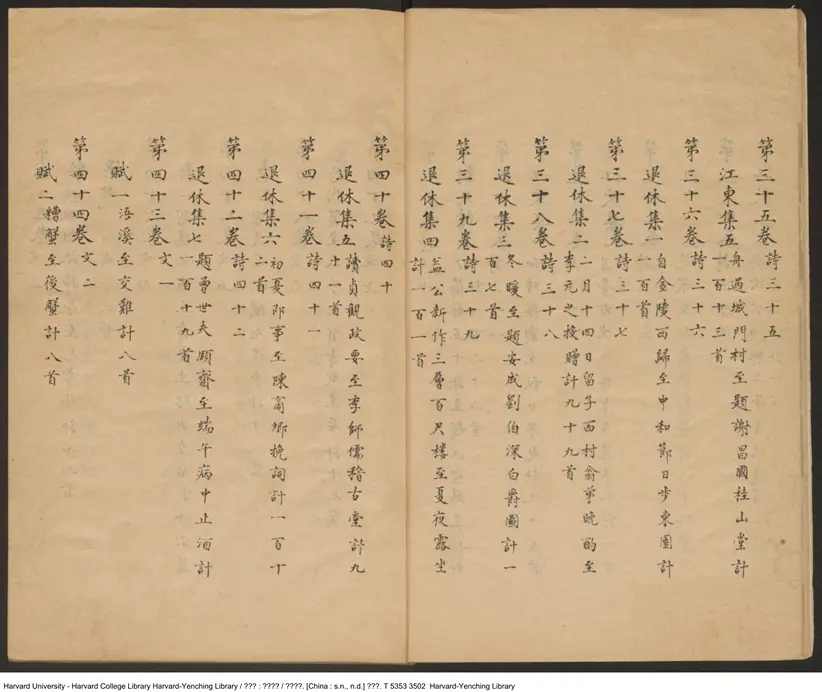 第三十五卷詩三十五
江東集五舟過城門村至題謝昌國桂山堂計
一百十三首
第三十六卷詩三十六
退休集一自金陵西歸至中和節日步東園計
一百首
第三十七卷詩三十七
退休集二二月十四日留子西村翁弟晚酌至
李元之投贈計九十九首
第三十八卷詩三十八
退休集三冬暖至題安成劉伯深白爵圖計一
百七首
第三十九卷詩三十九
退休集四益公新作三層百尺樓至夏夜露坐
計一百一首
第四十卷詩四十
退休集五讀貞觀政要至李師儒稽古堂計九
十一首
第四十一卷詩四十一
退休集六初夏即事至陳卿挽詞計一百十
二首
第四十二卷詩四十二
退休集七題曾世夫頤齋至端午病中止酒計
一百十九首
第四十三卷文一
賦一浯溪至交難計八首
第四十四卷文二
賦二糟蟹至後蟹計八首
Harvard University - Harvard College Library Harvard-Yenching Library / ??? : ???? / ????. [China : s.n., n.d.] ???. T 5353 3502 Harvard-Yenching Library